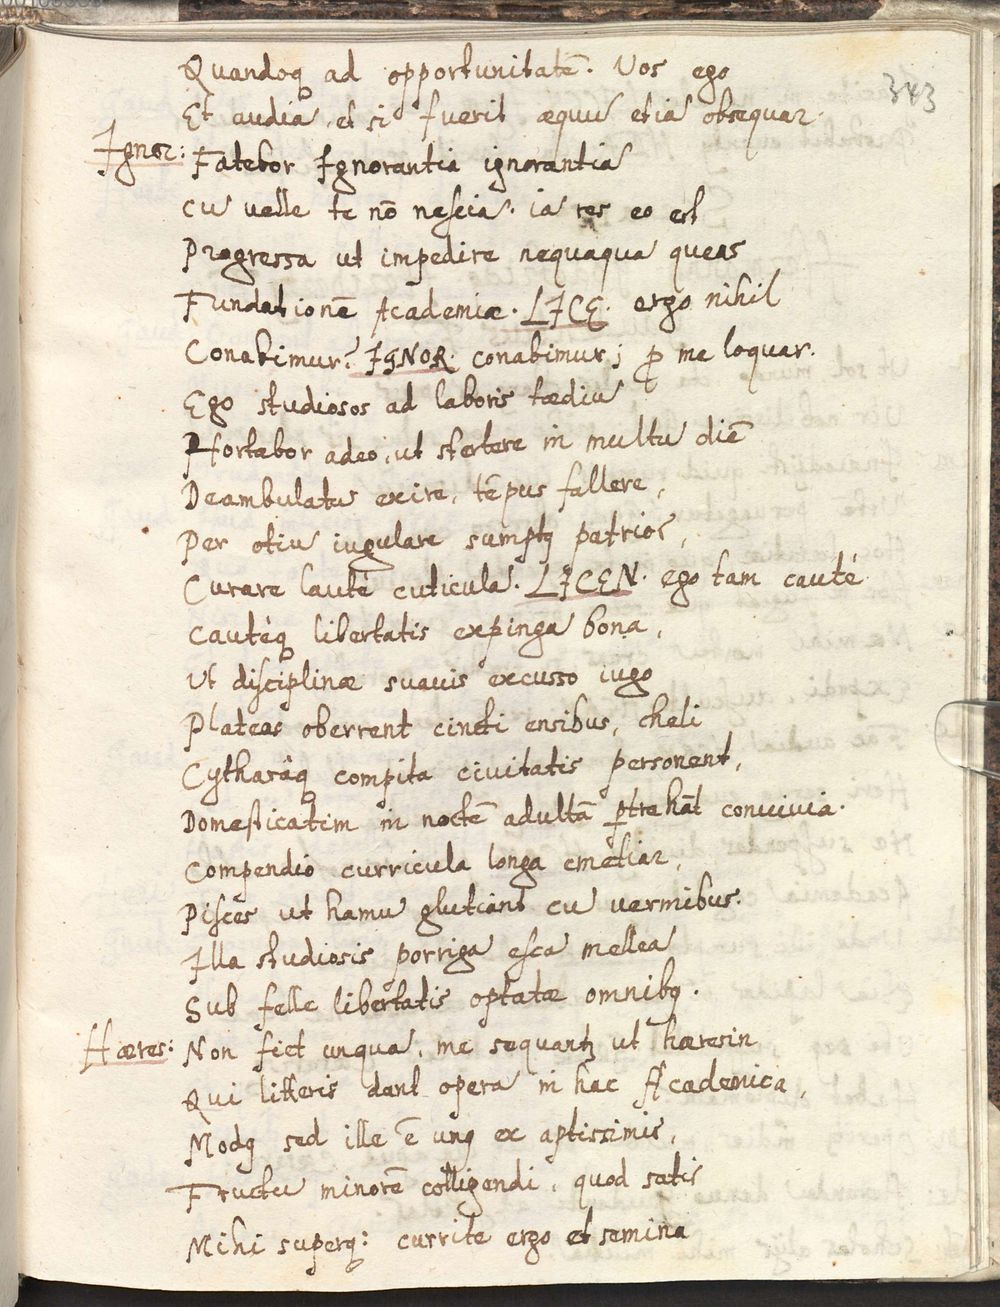 343
Quandoq ad opportunitatē. Vos ego
Et audiã, et si fuerit æquũ etiã obsequar.
Ignor: Fatebor Ignorantia ignorantiã
cũ velle te nō nesciã. iã res eo est
Progressa ut impedire nequaquã queas
Fundationē Academiæ. LICE. ergo nihil
Conabimur? IGNOR. conabimur; p me loquar.
Ego studiosos ad laboris tædiũ
Hortabor adeo, ut stertere in multũ diē
Deambulatũ exire, tēpus fallere,
Per otiũ iugulare sumptq patrios,
Curare lautè cuticulã. LICEN. ego tam cautè
Cautèq libertatis expingã bona,
Ut disciplinæ suavis excusso iugo
Plateas oberrent cincti ensibus, cheli
Cytharâq compita civitatis personent,
Domesticatim in noctē adultã ptrahãt convivia.
Compendio curricula longa emetiar,
Pisces ut hamũ glutiant cũ vermibus.
Illã studiosis porrigã escã melleã
Sub felle libertatis optatæ omnibq.
Hæres: Non fiet unquã, me sequantq ut hæresin
Qui litteris dant operã in hac Academicã,
Modq sed ille ē unq ex aptissimis,
Fructũ minorē colligendi, quod satis
Mihi superq: currite ergo et semina